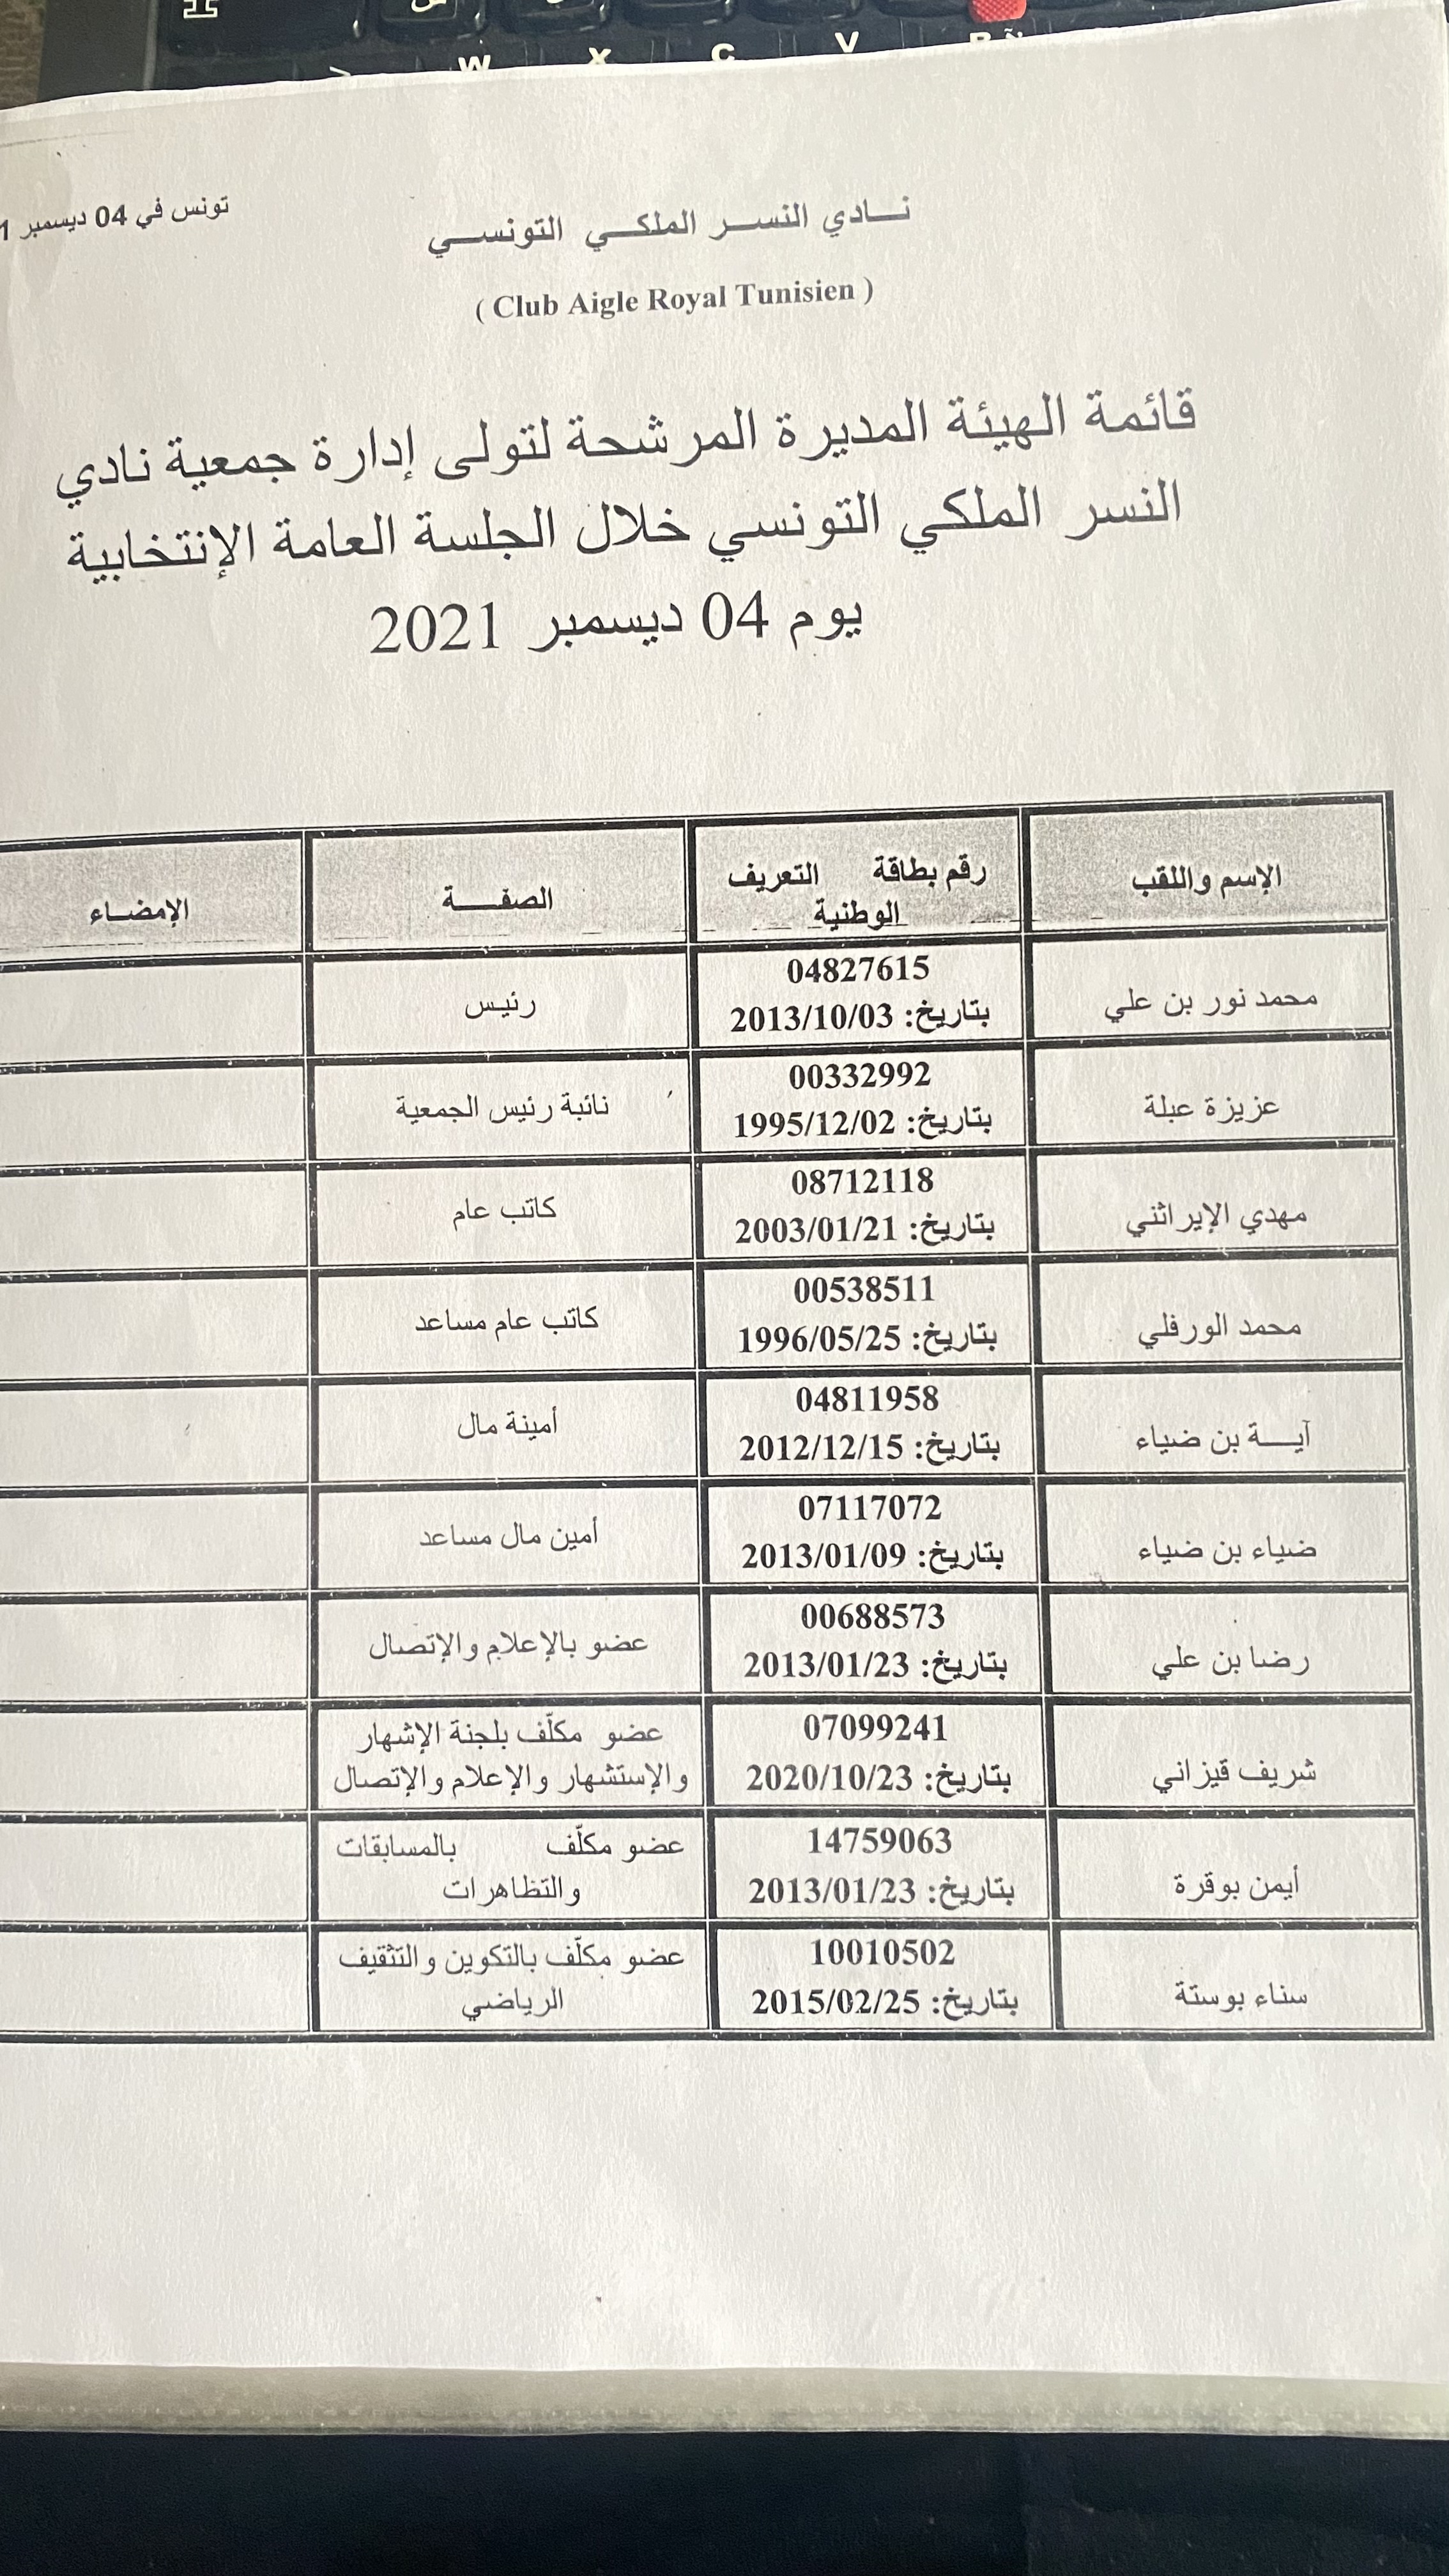 W X C V B
تونس في 04 ديسمبر
نادي النسر الملكي التونسي
( Club Aigle Royal Tunisien )
قائمة الهيئة المديرة المرشحة لتولى إدارة جمعية نادي
النسر الملكي التونسي خلال الجلسة العامة الإنتخابية
يوم 04 ديسمبر 2021
الإسم واللقب
رقم بطاقة التعريف
الوطنية
الصفة
الإمضاء
محمد نور بن علي
04827615
بتاريخ: 2013/10/03
رئيس
عزيزة عبلة
00332992
بتاريخ: 1995/12/02
نائبة رئيس الجمعية
مهدي الإيراثني
08712118
بتاريخ: 2003/01/21
كاتب عام
محمد الورفلي
00538511
بتاريخ: 1996/05/25
كاتب عام مساعد
آية بن ضياء
04811958
بتاريخ: 2012/12/15
أمينة مال
ضياء بن ضياء
07117072
بتاريخ: 2013/01/09
أمين مال مساعد
رضا بن علي
00688573
بتاريخ: 2013/01/23
عضو بالإعلام والإتصال
شريف قيزاني
07099241
بتاريخ: 2020/10/23
عضو مكلّف بلجنة الإشهار
والإستشهار والإعلام والإتصال
أيمن بوقرة
14759063
بتاريخ: 2013/01/23
عضو مكلّف بالمسابقات
والتظاهرات
سناء بوستة
10010502
بتاريخ: 2015/02/25
عضو مكلّف بالتكوين والتثقيف
الرياضي